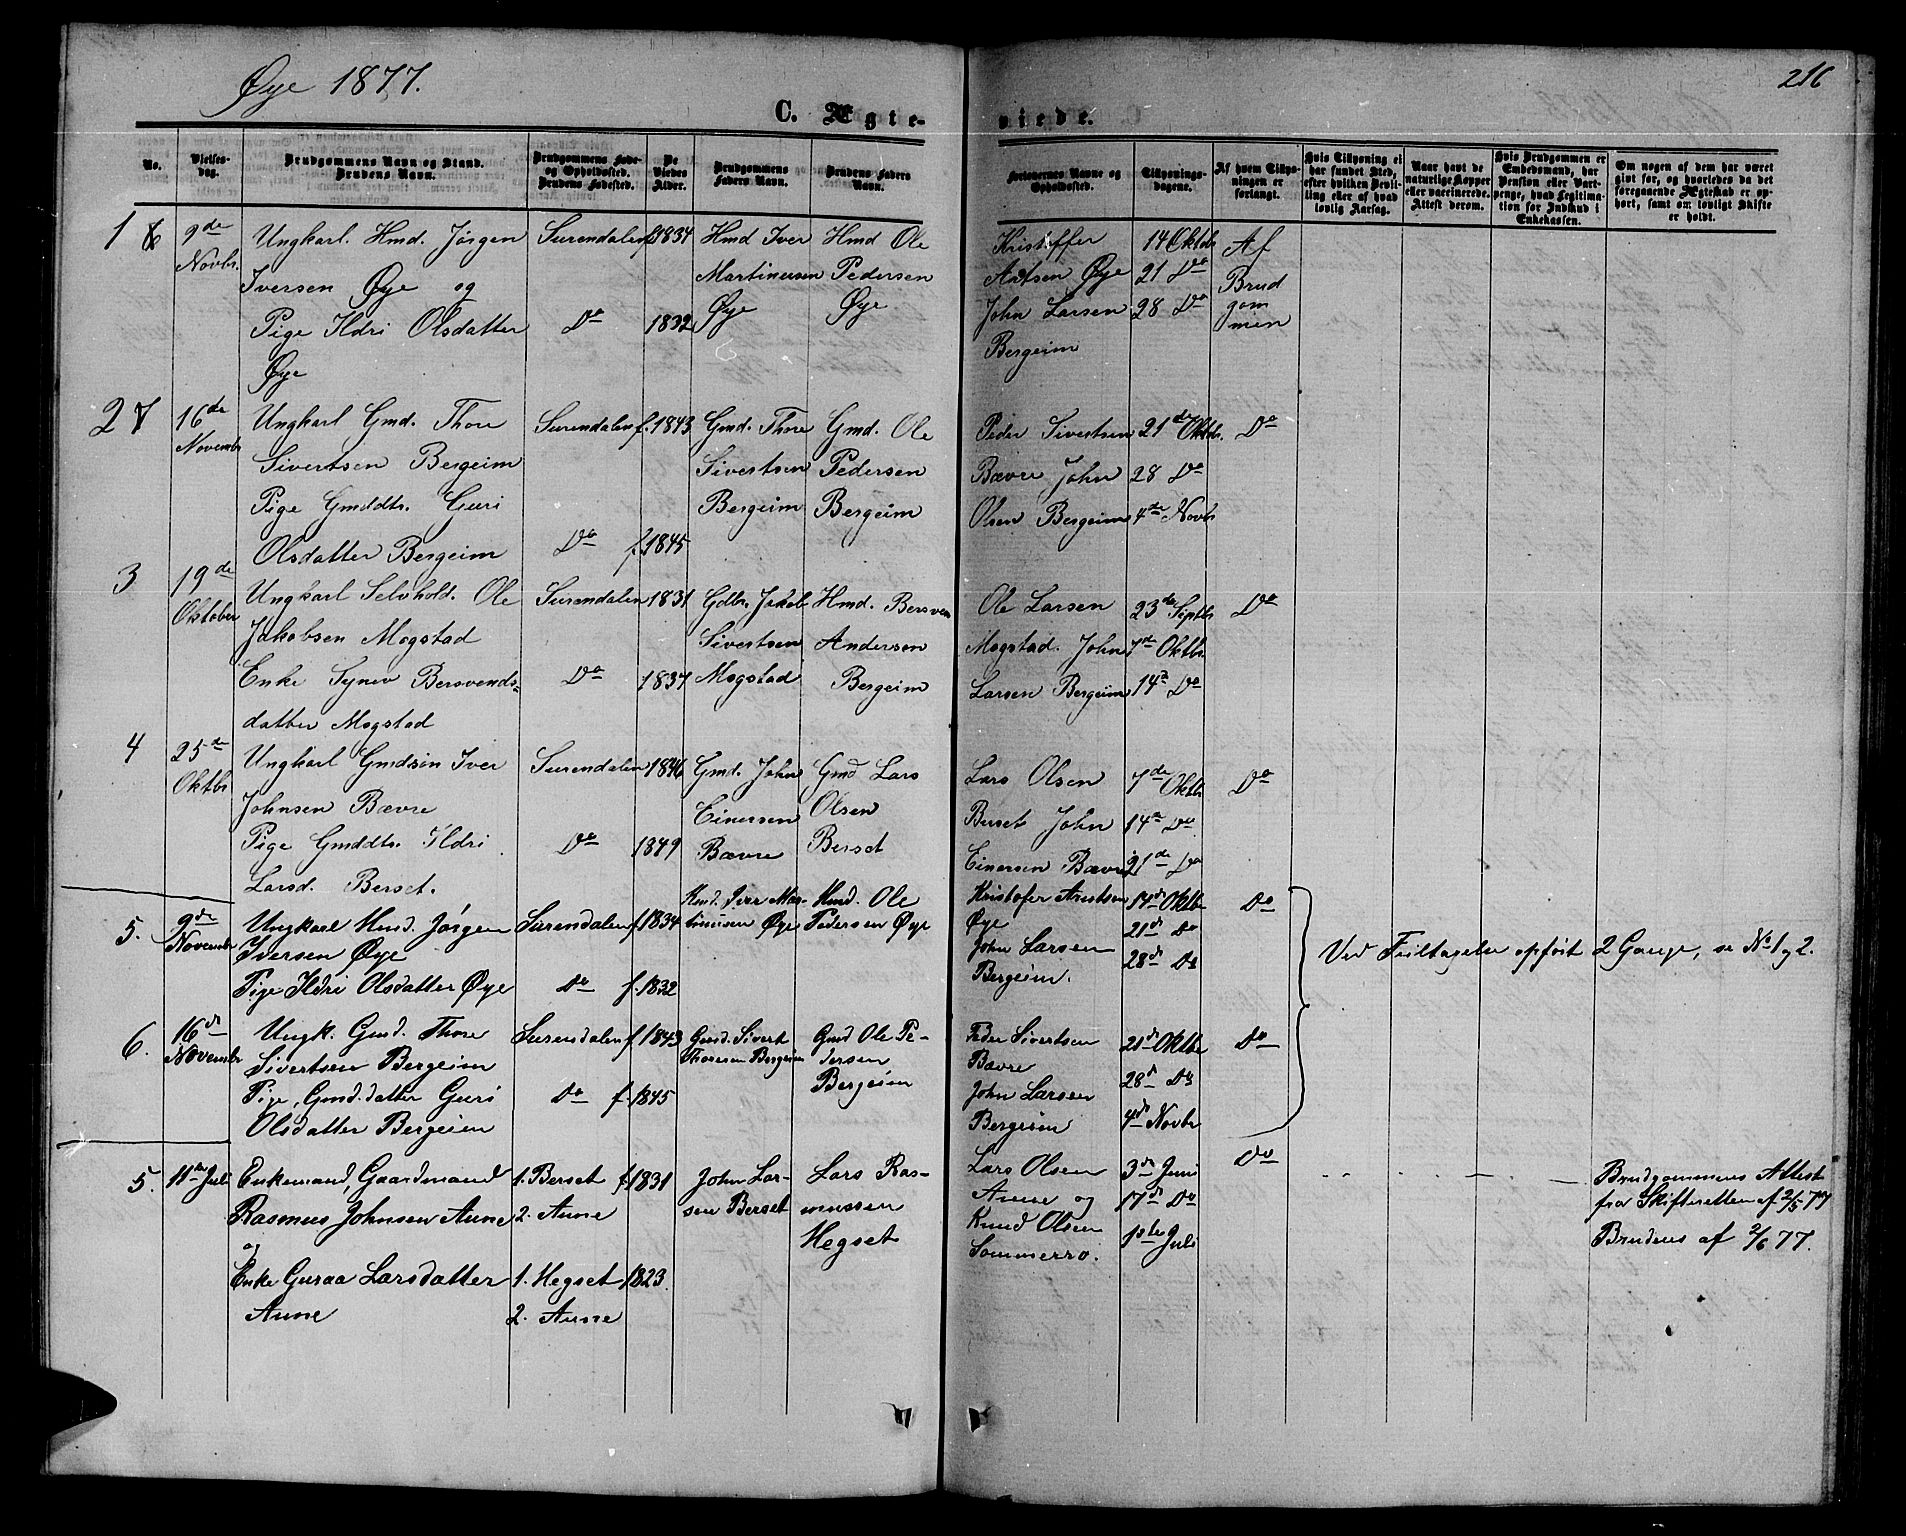 Øye 1877.
216
C. Ægte-
viede.
No.
Vielses-
dag.
Brudgommens Navn og Stand.
Brudens Navn.
Brudgommens Føde-
og Opholdssted.
Brudens Fødested.
De
Viedes
Alder.
Brudgommens
Faders Navn.
Brudens Faders
Navn.
Forlovernes Navne og
Opholdssted.
Tillysnings-
dagene.
Af hvem Tillys-
ningen er
forlangt.
Hvis Tillysning ei
har fundet Sted,
efter hvilken Bevil-
ling eller af hvad
lovlig Aarsag.
Naar havt de
naturlige Kopper
eller vaccinerede.
Attest derom.
Hvis Brudgommen er
Embedsmand, har
Pension eller Vart-
penge, hvad Legitima-
tion for Indskud i
Enkekassen.
Om nogen af dem har været
givt før, og hvorledes da det
foregaaende Ægteskab er op-
hørt, samt om lovligt Skifte
er holdt.
1
9de
Novbr.
Ungkarl. Hmd. Jørgen
Iversen Øye og
Pige Ildri Olsdatter
Øye
Surendalen
Do
f. 1834
1832
Hmd Iver
Martinusen
Øye
Hmd Ole
Pedersen
Øye
Kristoffer
Arntsen Øye
John Larsen
Bergeim
14 Oktbr
21 Do
28 Do
Af
Brud
gom
men
2
16de
Novembr
Ungkarl Gmd. Thore
Sivertsen Bergeim
Pige Gmddtr. Guri
Olsdatter Bergeim
Surendalen
Do
f. 1843
f. 1845
Gmd. Thore
Sivertsen
Bergeim
Gmd. Ole
Pedersen
Bergeim
Peder Sivertsen
Bævre John
Olsen Bergeim
21de Oktbr.
28 Do
4de Novbr
Do
3
19de
Oktober
Ungkarl Selvhold. Ole
Jakobsen Mogstad
Enke Synev Bersvends-
datter Mogstad
Surendalen
Do
1831
1837
Gdbr. Jakob
Sivertsen
Mogstad
Hmd. Bersven
Andersen
Bergeim
Ole Larsen
Mogstad. John
Larsen Bergeim
23de Septbr
7de Oktbr.
14de Do
Do
4
25de
Oktbr
Ungkarl Gmdsøn Iver
Johnsen Bævre
Pige Gmddtr. Ildri
Larsd. Berset.
Surendalen
Do
1846
1849
Gmd. John
Einersen
Bævre
Gmd Lars
Olsen
Berset
Lars Olsen
Berset John
Einersen Bævre
7de Oktbr
14de Do
21de Do
Do
5.
9de
Novembr
Ungkarl Hmd. Jørgen
Iversen Øye
Pige Ildri Olsdatter Øye
Surendalen
Do
f. 1834
f. 1832
Hmd. Iver Mar-
tinusen Øye
Hmd. Ole
Pedersen Øye
Kristofer Arntsen
Øye
John Larsen
Bergeim.
14d Oktbr
21d Do
28d Do
Do
Ved Feiltagelse opført 2 Gange, se No 1 g 2.
6.
16d
Novembr
Ungk. Gmd. Thore
Sivertsen Bergeim
Pige, Gmd.datter Guri
Olsdatter Bergeim
Surendalen
Do
f. 1843
f. 1845
Gmd. Sivert
Thoresen Bergeim
Gmd Ole Pe-
dersen
Bergeim
Peder Sivertsen
Bævre
John Larsen
Bergeim
21d Oktbr
28d Do
4d Novbr
Do
5.
11te Juli
Enkemand, Gaardmand
Rasmus Johnsen Aune
og
Enke Guraa Larsdatter
Aune
1. Berset
2. Aune
1. Hegset
2. Aune
f. 1831
1823
John Lar-
sen Berset
Lars Ras-
mussen
Hegset
Lars Olsen
Aune og
Knud Olsen
Sommerro.
3d Juni
17d Do
1ste Juli
Do
Brudgommens Attest
fra Skifteretten af 2/5 77
Brudens af 2/6 77.